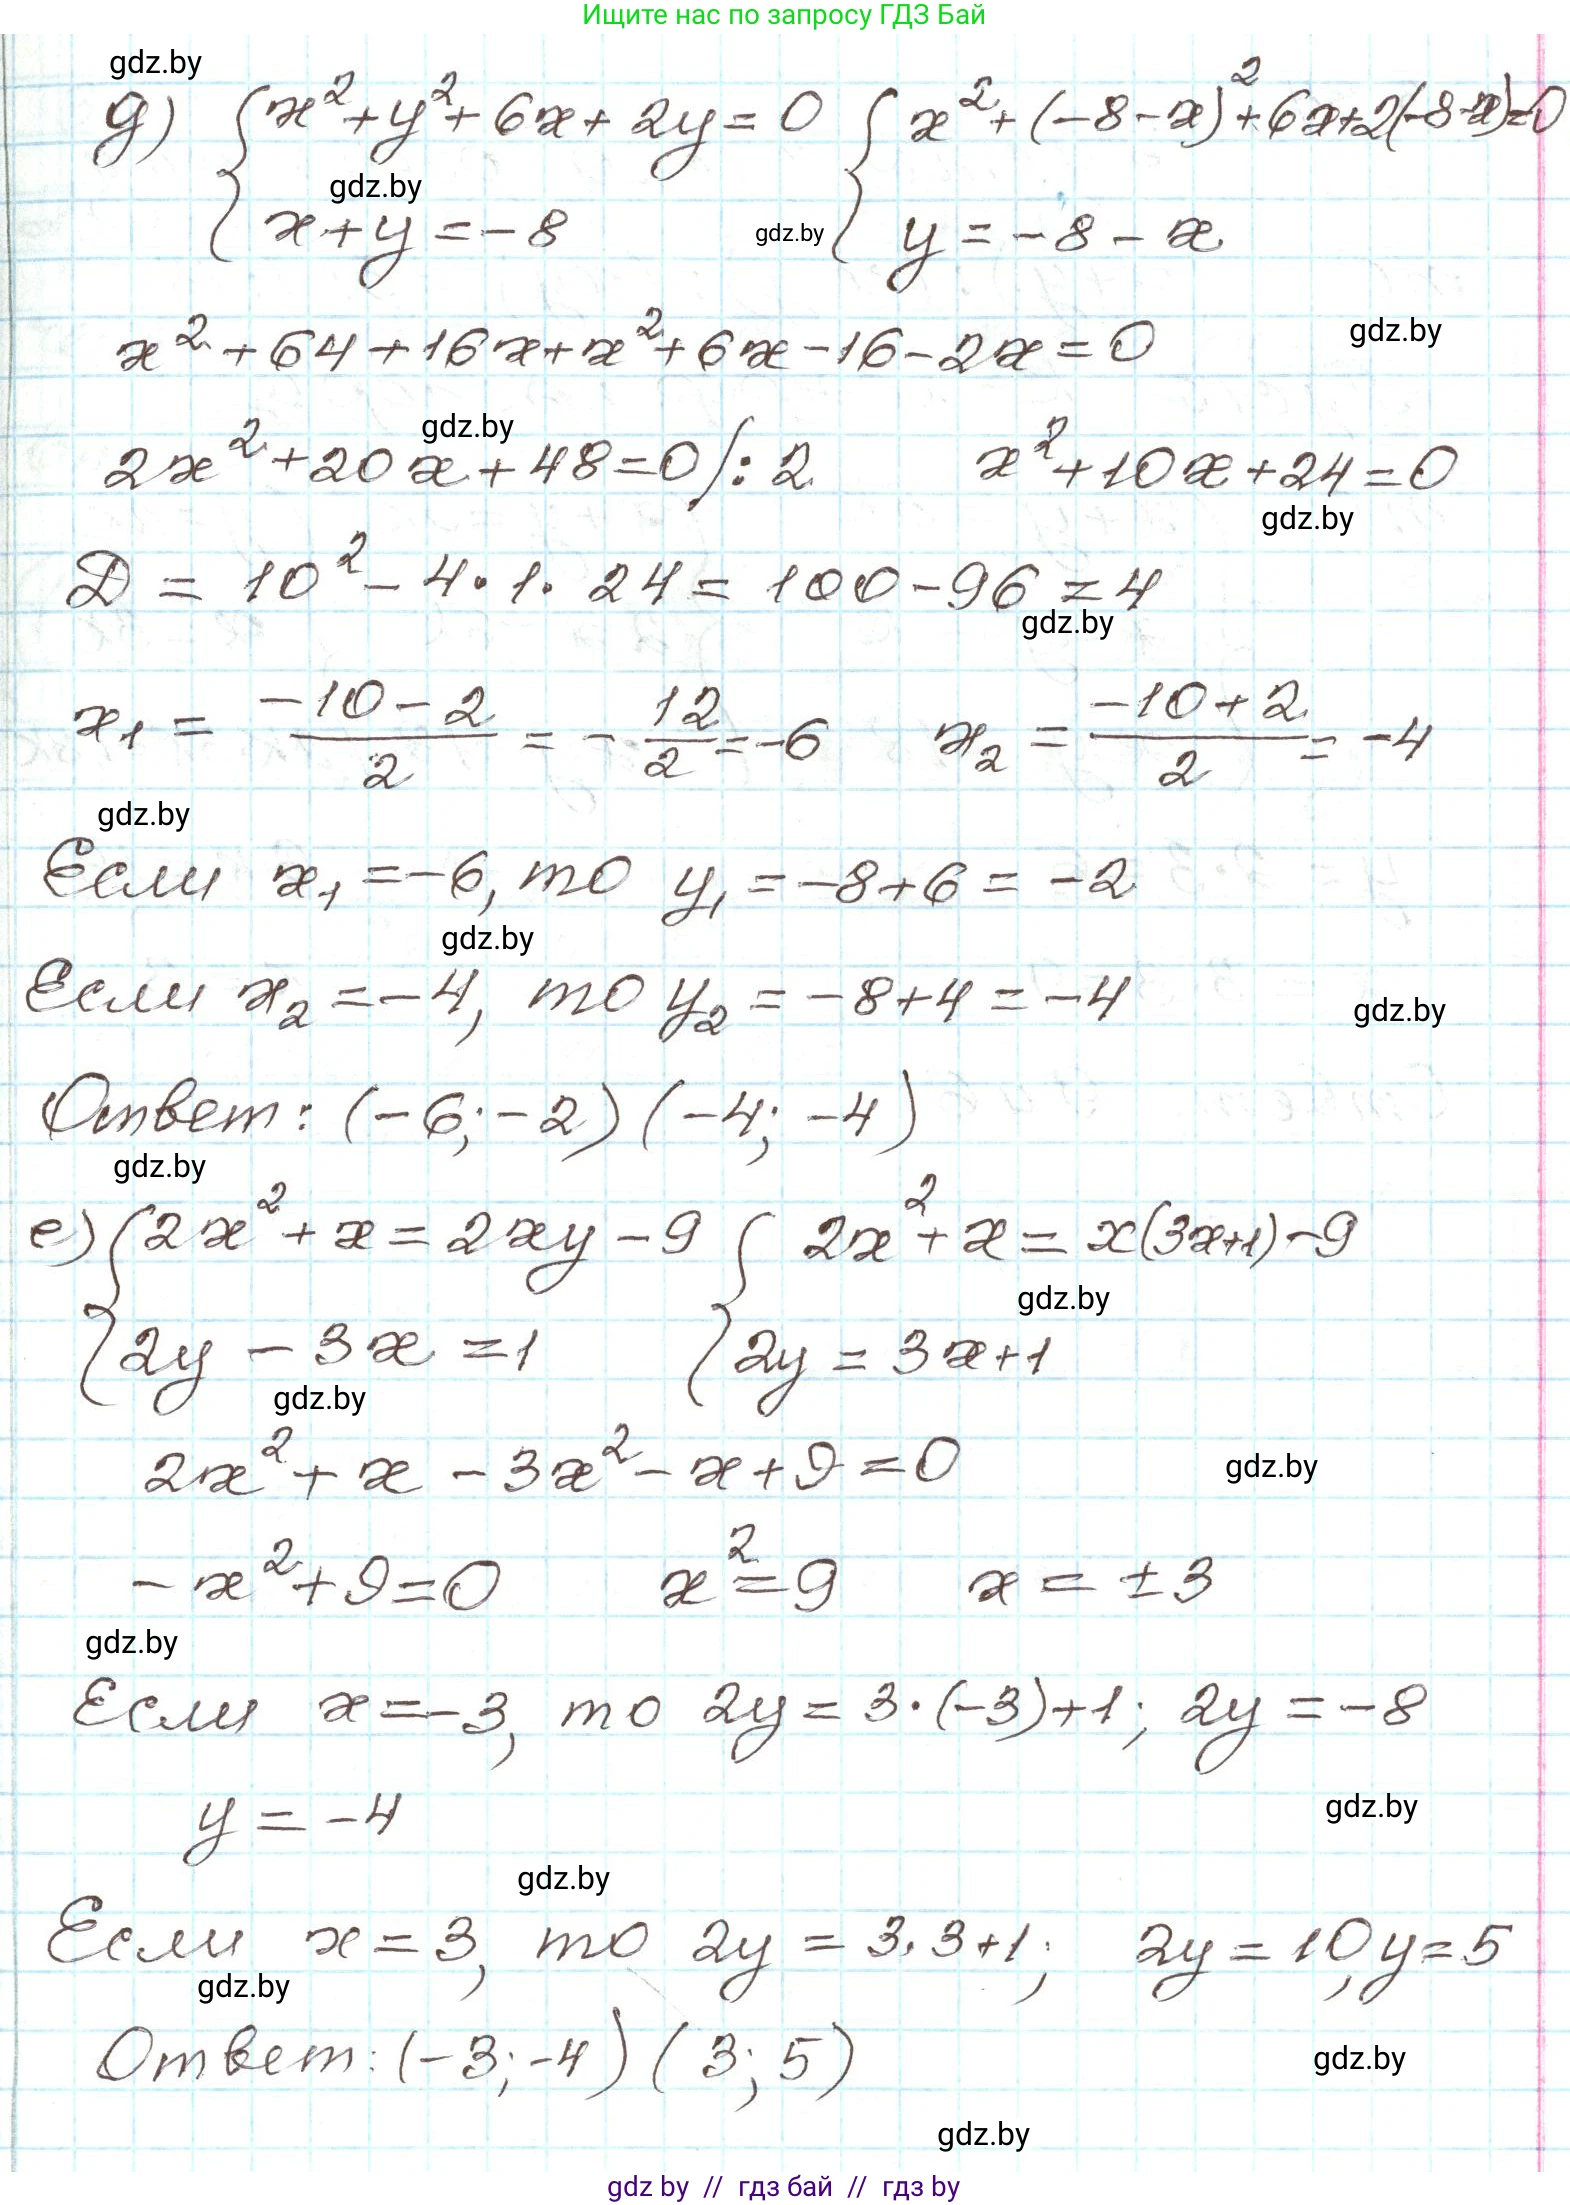 Ищите нас по запросу ГДЗ Бай
gdz.by
д) { x² + y² + 6x + 2y = 0 { x² + (-8 - x)² + 6x + 2(-8 - x) = 0
gdz.by
x + y = -8 gdz.by y = -8 - x
x² + 64 + 16x + x² + 6x - 16 - 2x = 0 gdz.by
gdz.by
2x² + 20x + 48 = 0 /: 2 x² + 10x + 24 = 0
gdz.by
D = 10² - 4 · 1 · 24 = 100 - 96 = 4
gdz.by
x₁ = (-10 - 2)/2 = - 12/2 = -6 x₂ = (-10 + 2)/2 = -4
gdz.by
Если x₁ = -6, то y₁ = -8 + 6 = -2
gdz.by
Если x₂ = -4, то y₂ = -8 + 4 = -4 gdz.by
Ответ: (-6; -2) (-4; -4)
gdz.by
е) { 2x² + x = 2xy - 9 { 2x² + x = x(3x+1) - 9
gdz.by
2y - 3x = 1 2y = 3x + 1
gdz.by
2x² + x - 3x² - x + 9 = 0 gdz.by
-x² + 9 = 0 x² = 9 x = ±3
gdz.by
Если x = -3, то 2y = 3 · (-3) + 1; 2y = -8
y = -4 gdz.by
gdz.by
Если x = 3, то 2y = 3 · 3 + 1; 2y = 10, y = 5
gdz.by
Ответ: (-3; -4) (3; 5) gdz.by
gdz.by
gdz by // гдз бай // гдз by